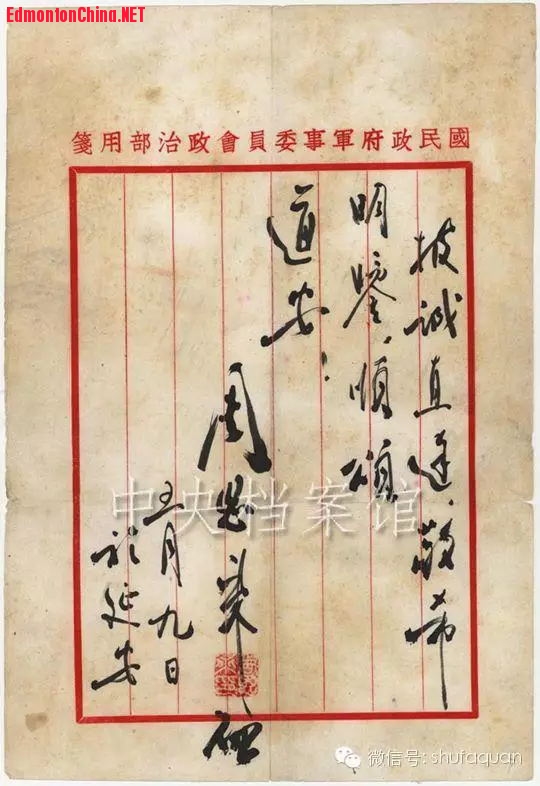 EdmontonChina.NET
國民政府軍事委員會政治部用箋
披誠直達，敬希
明鑒，順頌
道安！
周恩來
五月九日
於延安
中央档案馆
微信号: shufaquan